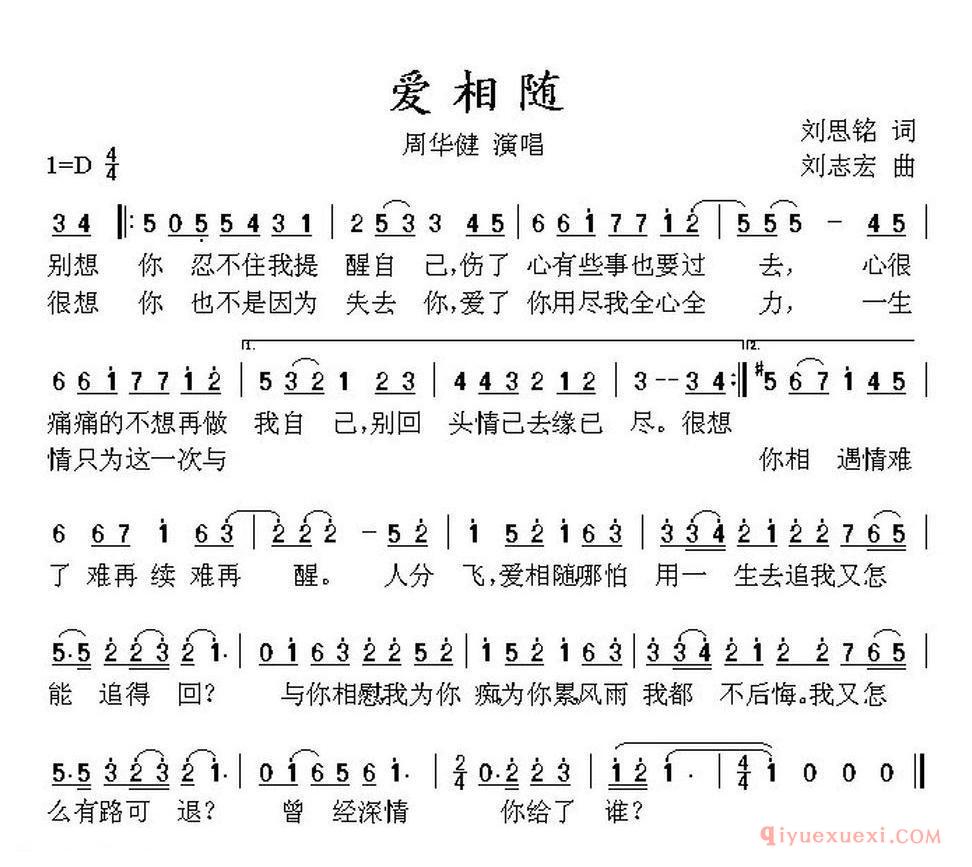 爱相随
周华健 演唱
刘思铭 词
1=D 4/4
刘志宏 曲
3 4 ‖: 5 0 5 5 4 3 1 | 2 5 3 3 4 5 | 6 6 1 7 7 1 2 | 5 5 5 - 4 5 |
别想 你 忍不住我提 醒自 己,伤了 心有些事也要过 去, 心很
很想 你 也不是因为 失去 你,爱了 你用尽我全心全 力, 一生
1. 2.
6 6 1 7 7 1 2 | 5 3 2 1 2 3 | 4 4 3 2 1 2 | 3 - - 3 4 :‖ #5 6 7 1 4 5 |
痛痛的不想再做 我自 己,别回 头情已去缘已 尽。很想
情只为这一次与 你相 遇情难
6 6 7 1 6 3 | 2 2 2 - 5 2 | 1 5 2 1 6 3 | 3 3 4 2 1 2 2 7 6 5 |
了 难再 续 难再 醒。 人分 飞,爱相随哪怕 用一 生去追我又怎
5· 5 2 2 3 2 1· | 0 1 6 3 2 2 5 2 | 1 5 2 1 6 3 | 3 3 4 2 1 2 2 7 6 5 |
能 追得 回? 与你相慰我为你 痴为你累风雨 我都 不后悔。我又怎
5· 5 2 2 3 2 1· | 0 1 6 5 6 1· | 2/4 0· 2 2 3 | 1 2 1 · | 4/4 1 0 0 0 ‖
么有路可 退? 曾 经深情 你给了 谁?
qiyuexuexi.com